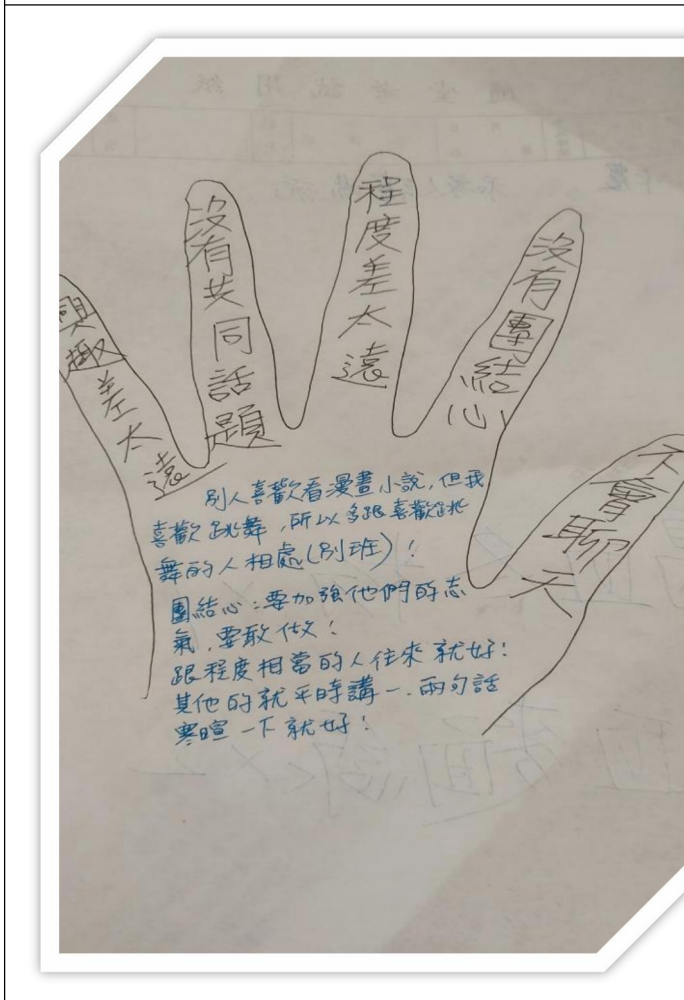 興趣差太遠
沒有共同話題
程度差太遠
沒有團結心
不會聊天
別人喜歡看漫畫小說,但我
喜歡跳舞,所以多跟喜歡跳
舞的人相處(別班)!
團結心:要加強他們的志
氣,要敢做!
跟程度相當的人往來就好!
其他的就平時講一.兩句話
寒暄一下就好!